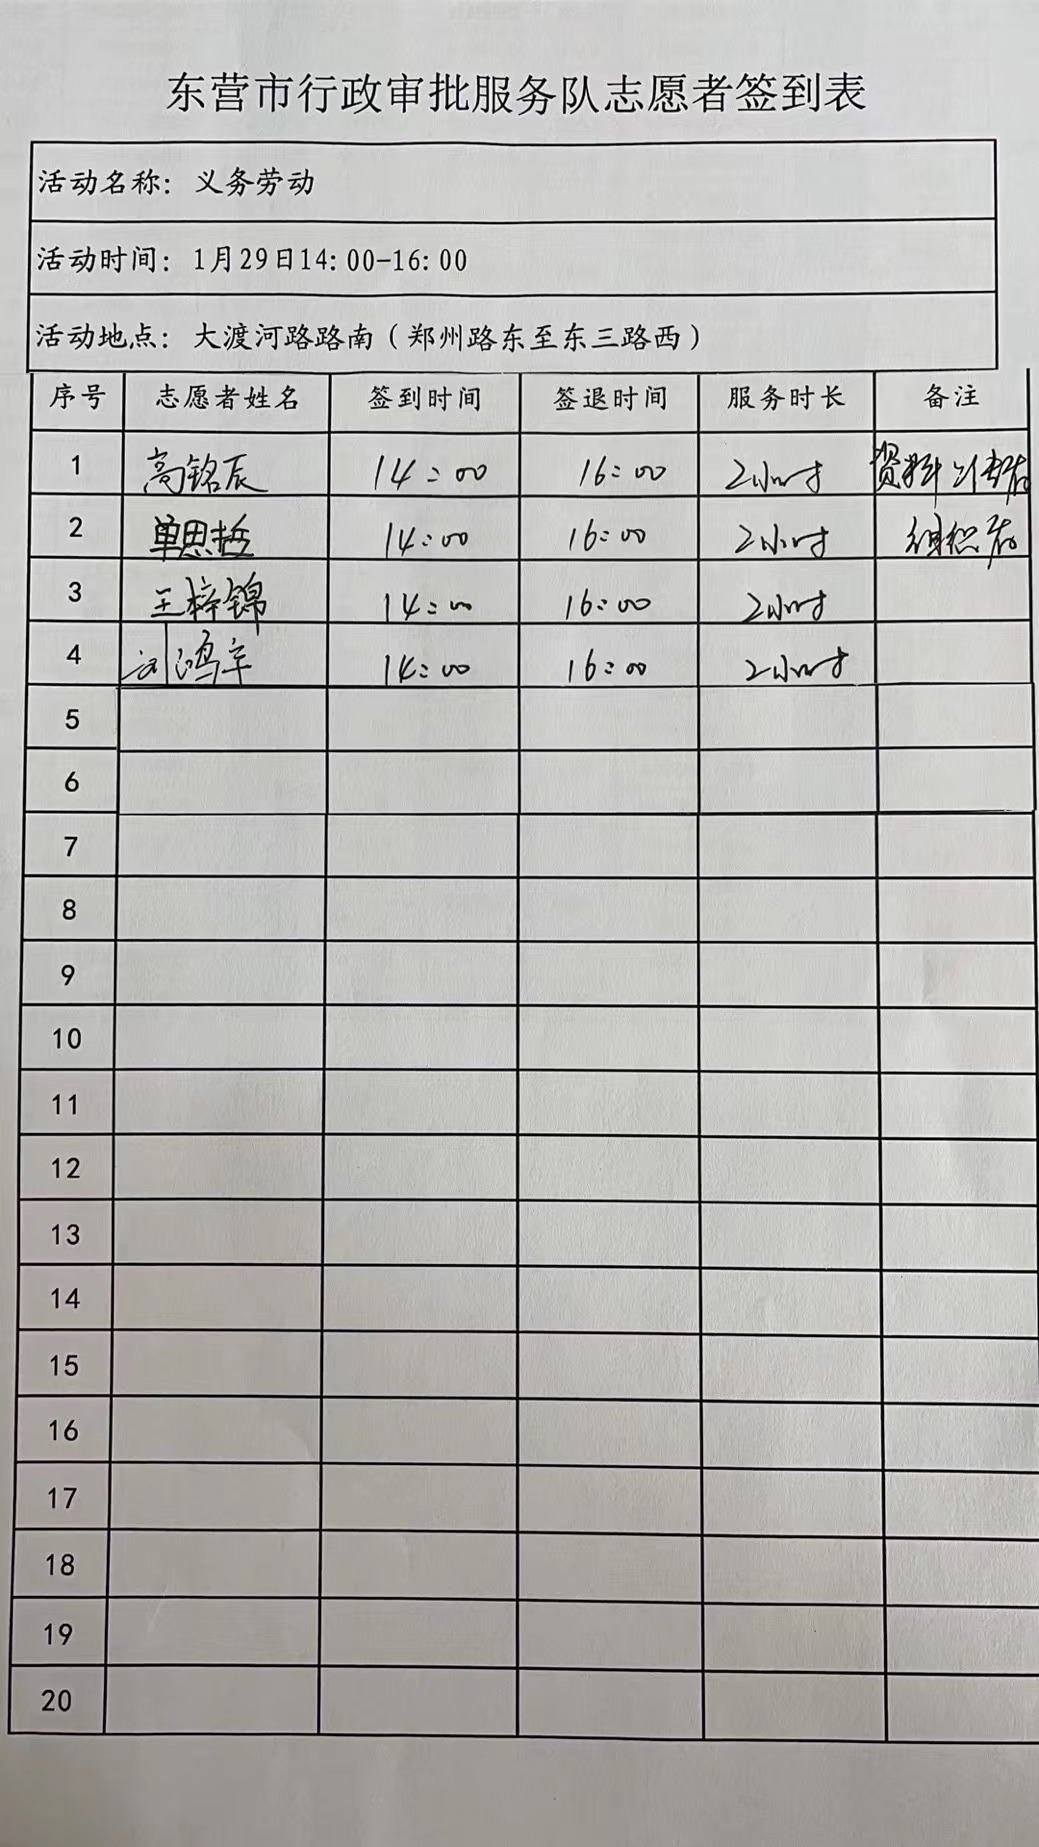 东营市行政审批服务队志愿者签到表
活动名称：义务劳动
活动时间：1月29日14：00-16：00
活动地点：大渡河路路南（郑州路东至东三路西）
序号 志愿者姓名 签到时间 签退时间 服务时长 备注
1 高铭辰 14：00 16：00 2小时 资料
2 单思哲 14：00 16：00 2小时 组织者
3 王梓锦 14：00 16：00 2小时
4 刘鸿宇 14：00 16：00 2小时
5
6
7
8
9
10
11
12
13
14
15
16
17
18
19
20